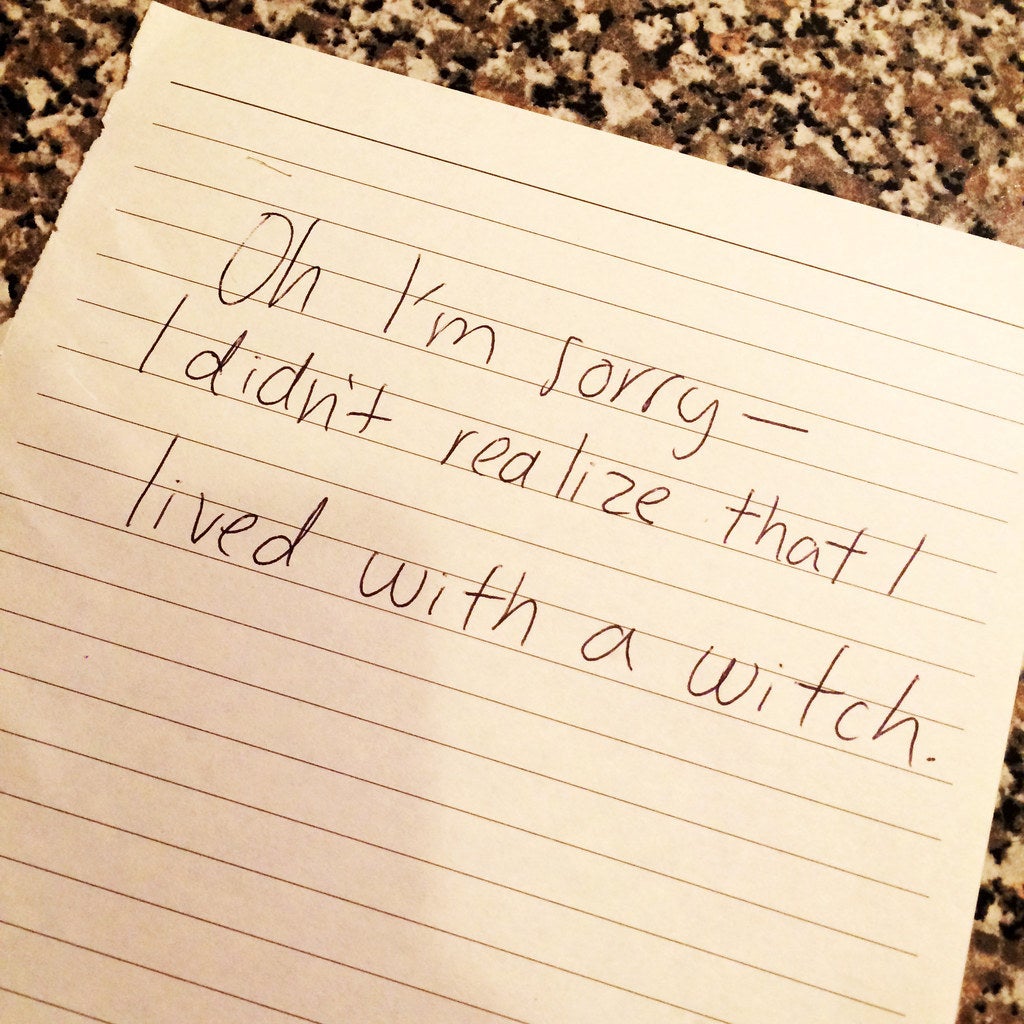 Oh I'm sorry—
I didn't realize that I
lived with a witch.